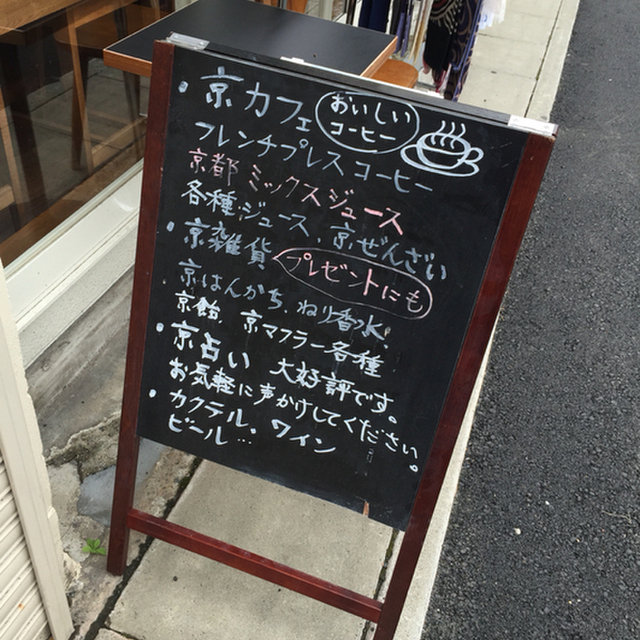 ・京カフェ おいしい
コーヒー
フレンチプレスコーヒー
京都 ミックスジュース
各種ジュース、京ぜんざい
・京雑貨 プレゼントにも
京はんかち、ねり香水
京飴 京マフラー各種
・京占い 大好評です。
お気軽に声かけしてください。
・カクテル・ワイン
ビール…